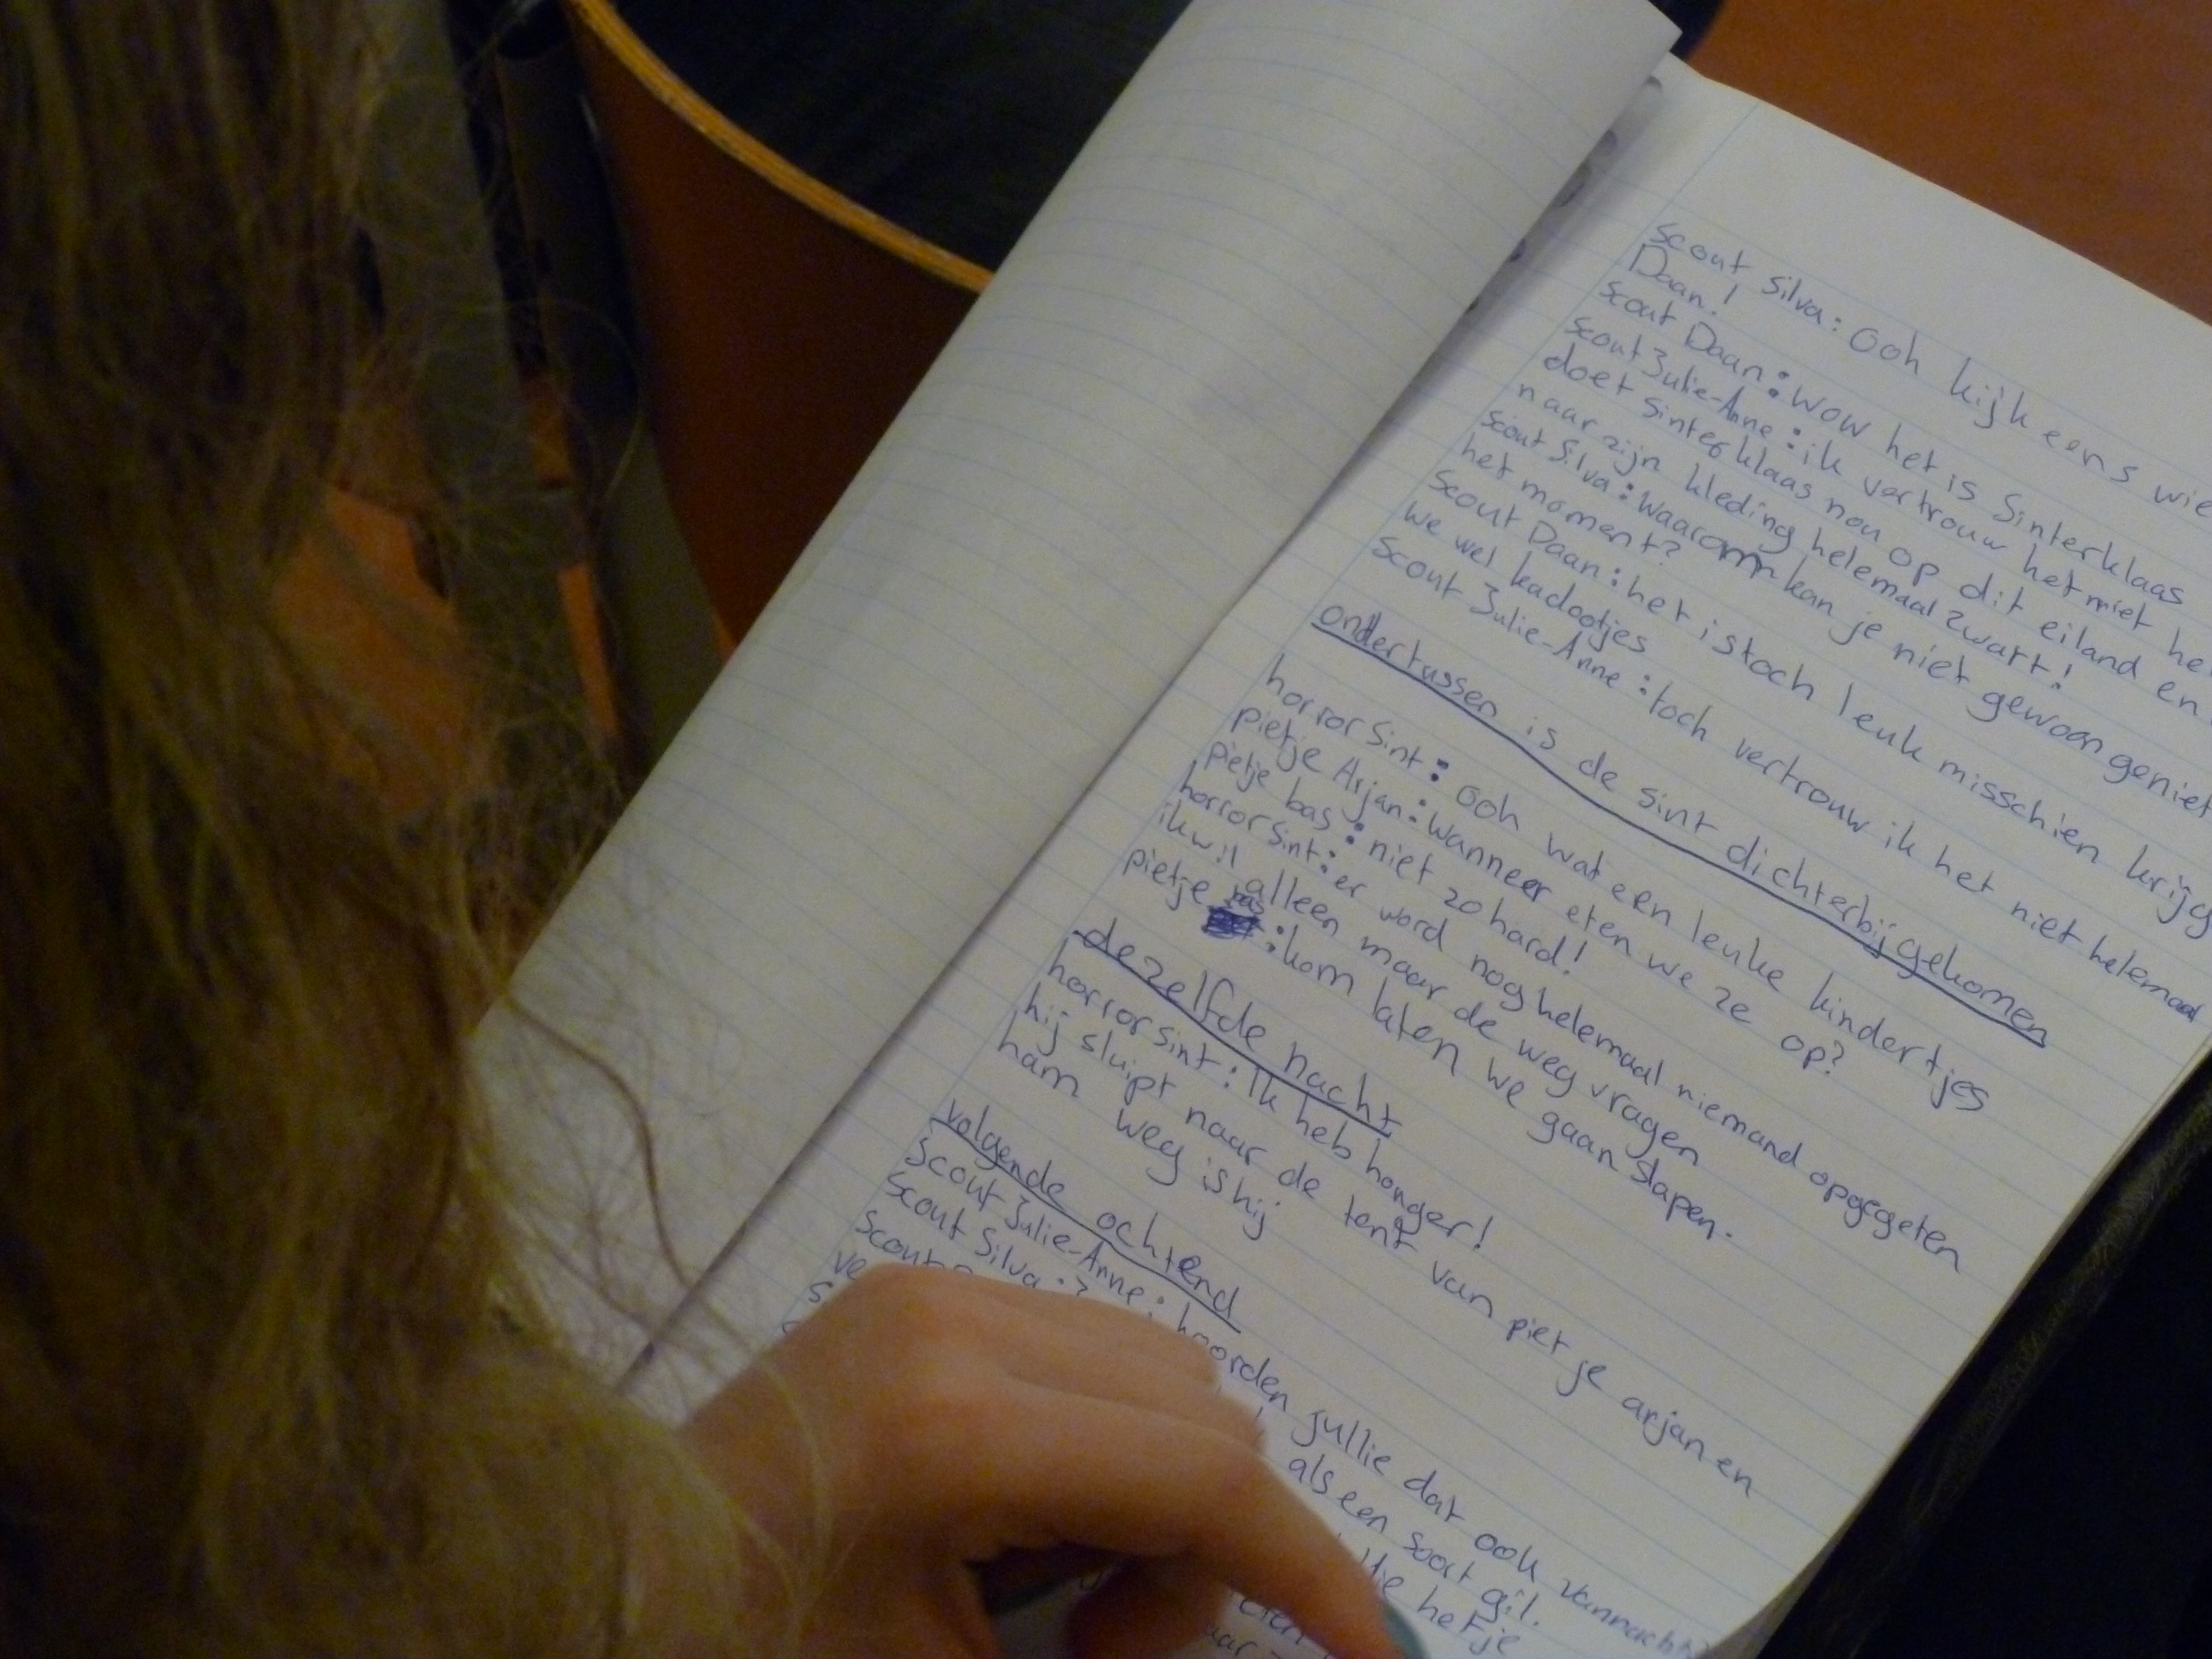 scout Silva: Ooh kijk eens wie
Daan!
scout Daan: Wow het is Sinterklaas
scout Julie-Anne: ik vertrouw het niet
doet sinterklaas nou op dit eiland en
naar zijn kleding helemaal zwart!
scout Silva: Waarom kan je niet gewoon geniet
het moment?
scout Daan: het is toch leuk misschien krijg
we wel kadootjes
scout Julie-Anne: toch vertrouw ik het niet helemaal
ondertussen is de sint dichterbij gekomen
horror Sint: Ooh wat een leuke kindertjes
pietje Arjan: Wanneer eten we ze op?
pietje bas: niet zo hard!
horror Sint: er word nog helemaal niemand opgegeten
ik wil alleen maar de weg vragen
pietje bas: kom laten we gaan slapen.
dezelfde nacht
horror sint: Ik heb honger!
hij sluipt naar de tent van pietje arjan en
ham weg is hij
volgende ochtend
scout Julie-Anne: hoorden jullie dat ook vannacht?
scout Silva: ?
als een soort gil.
scout
ve
het je
eten